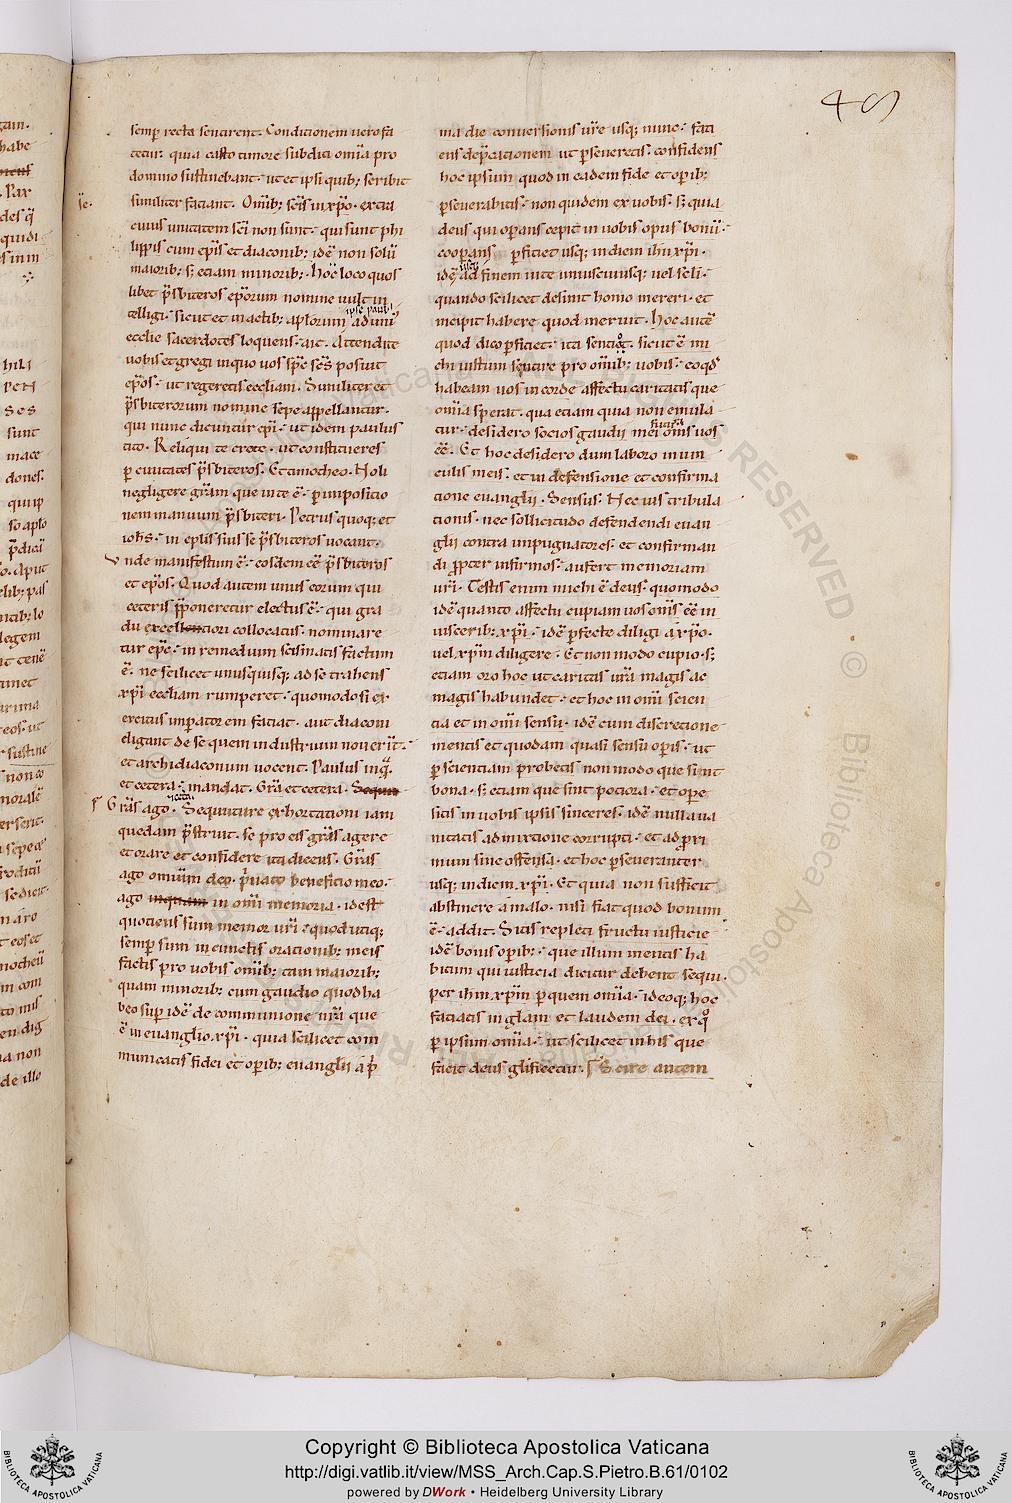 49
semp̄ recta sentirent. Conditionem uero fa
tetur. quia casto timore subditi om̄ia pro
domino sustinebant. ut et ipsi quib; scribit
similiter faciant. Om̄ib; sc̄is in xp̄o. extra
cuius unitatem sc̄i non sunt. qui sunt phi
lippis cum ep̄is et diaconib; idē non solū
maiorib; s; etiam minorib; hoc loco quos
libet p̄sbiteros ep̄orum nomine uult in
telligi. sicut et in actib; ap̄lorum ad uni
ipse paul'
ecclie sacerdotes loquens. ait. Attendite
uobis et gregi in quo uos sp̄c sc̄s posuit
ep̄os. ut regeretis eccliam. Similiter et
p̄sbiterorum nomine sepe appellantur.
qui nunc dicuntur ep̄i. ut idem paulus
tito. Reliqui te crete. ut constitueres
p ciuitates p̄sbiteros. Et timotheo. Noli
negligere grām que in te ē. p impositio
nem manuum p̄sbiteri. Petrus quoq; et
ioh̄s. in ep̄lis suis se p̄sbiteros uocant.
Unde manifestum ē. eosdem eē p̄sbiteros
et ep̄os. Quod autem unus eorum qui
ceteris p̄poneretur electus ē. qui gra
du excellentiori collocatus. nominare
tur ep̄c. in remedium scismatis factum
ē. ne scilicet unusquisq; ad se trahens
xp̄i eccliam rumperet. quomodo si ex
ercitus impatorem faciat. aut diaconi
eligant de se quem industrium nouerīt.
et archidiaconum uocent. Paulus inq̄.
et cetera. mandat. Grā et cetera.
Grās ago. Sequuture exhortationi iam
quedam p̄struit. se pro eis grās agere
et orare et confidere ita dicens. Grās
ago omnium deo. p̄uato beneficio meo.
ago inquam in om̄i memoria. id est
quotiens sum memor ur̄i. quod utiq;
semp̄ sum in cunctis orationib; meis
factis pro uobis om̄ib; tam maiorib;
quam minorib; cum gaudio quod ha
beo sup idē de communione ur̄a que
ē in euangelio xp̄i. quia scilicet com
municatis fidei et opib; euanglii a p̄
ma die conuersionis ur̄e usq; nunc. faci
ens dep̄cationem ut pseueretis. confidens
hoc ipsum quod in eadem fide et opib;
pseuerabitis. non quidem ex uobis. s; quia
deus qui operans cepit in uobis opus bonū.
coopans pficiet usq; in diem ih̄u xp̄i.
idē ad finem uite uniuscuiusq; uel scli.
quando scilicet desinit homo mereri. et
incipit habere quod meruit. Hoc autē
quod dico pficiet. ita sentio. sicut ē mi
chi iustum sentire pro om̄ib; uobis. eo qd̄
habeam uos in corde affectu caritatis que
om̄ia sperat. qua etiam quia non emula
tur. desidero socios gaudii mei om̄is uos
eē. Et hoc desidero dum laboro in uin
culis meis. et in defensione et confirma
tione euanglii. Sensus. Nec uis tribula
tionis. nec sollicitudo defendendi euan
glii contra impugnatores. et confirman
di ppter infirmos. aufert memoriam
ur̄i. Testis enim michi ē deus. quomodo
idē quanto affectu cupiam uos om̄is eē in
uisceribus xp̄i. idē pfecte diligi a xp̄o.
uel xp̄m diligere. Et non modo cupio. s;
etiam oro hoc ut caritas ur̄a magis ac
magis habundet. et hoc in om̄i scien
tia et in om̄i sensu. idē cum discretione
mentis et quodam quasi sensu opis. ut
p scientiam probetis non modo que sint
bona. s; etiam que sint potiora. et ope
sitis in uobis ipsis sinceres. idē nulla ua
nitatis admixtione corrupti. et ad pri
mum sine offensa. et hoc pseueranter
usq; in diem xp̄i. Et quia non sufficit
abstinere a malo. nisi fiat quod bonum
ē. addit. Sitis repleti fructu iusticie
idē bonis opib; que illum mentis ha
bitum qui iusticia dicitur debent sequi.
per ih̄m xp̄m p quem om̄ia. ideoq; hoc
faciatis in gl̄am et laudem dei. ex q°
p ipsum om̄ia. ut scilicet in his que
facit deus gl̄ificetur. Scire autem
Copyright © Biblioteca Apostolica Vaticana
http://digi.vatlib.it/view/MSS_Arch.Cap.S.Pietro.B.61/0102
powered by DWork • Heidelberg University Library
BIBLIOTECA APOSTOLICA VATICANA
BIBLIOTECA APOSTOLICA VATICANA